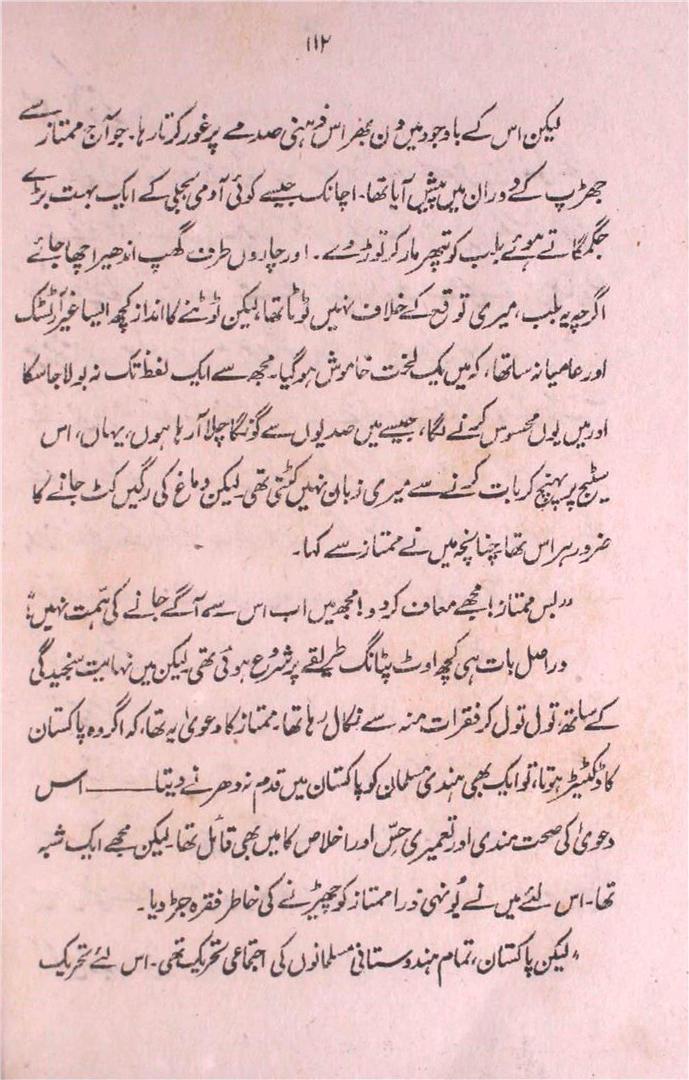 ۱۱۲
لیکن اس کے باوجود میں دن بھر اس ذہنی صدمے پر غور کرتا رہا۔ جو آج ممتاز سے
جھڑپ کے دوران میں پیش آیا تھا۔ اچانک جیسے کوئی آدمی بجلی کے ایک بہت بڑے
جگمگاتے ہوئے بلب کو پتھر مار کر توڑ دے۔ اور چاروں طرف گھپ اندھیرا چھا جائے
اگرچہ یہ بلب، میری توقع کے خلاف نہیں ٹوٹا تھا، لیکن ٹوٹنے کا انداز کچھ ایسا غیر آرٹسٹک
اور عامیانہ سا تھا، کہ میں یک لخت خاموش ہو گیا۔ مجھ سے ایک لفظ تک نہ بولا جا سکا
اور میں یوں محسوس کرنے لگا، جیسے میں صدیوں سے گونگا چلا آ رہا ہوں، یہاں، اس
سٹیج پر پہنچ کر بات کرنے سے میری زبان نہیں کٹتی تھی۔ لیکن دماغ کی رگیں کٹ جانے کا
ضرور ہراس تھا۔ چنانچہ میں نے ممتاز سے کہا۔
”بس ممتاز! مجھے معاف کر دو! مجھ میں اب اس سے آگے جانے کی ہمّت نہیں!“
دراصل بات ہی کچھ اوٹ پٹانگ طریقے پر شروع ہوئی تھی۔ لیکن میں نہایت سنجیدگی
کے ساتھ، تول تول کر فقرات منہ سے نکال رہا تھا۔ ممتاز کا دعویٰ یہ تھا، کہ اگر وہ پاکستان
کا ڈکٹیٹر ہوتا، تو ایک بھی ہندی مسلمان کو پاکستان میں قدم نہ دھرنے دیتا ــــــ اس
دعویٰ کی صحت مندی اور تعمیری حِسّ اور اخلاص کا میں بھی قائل تھا۔ لیکن مجھے ایک شبہ
تھا۔ اس لئے میں نے یُونہی ذرا ممتاز کو چھیڑنے کی خاطر فقرہ جڑ دیا۔
”لیکن پاکستان، تمام ہندوستانی مسلمانوں کی اجتماعی تحریک تھی۔ اس لئے تحریک